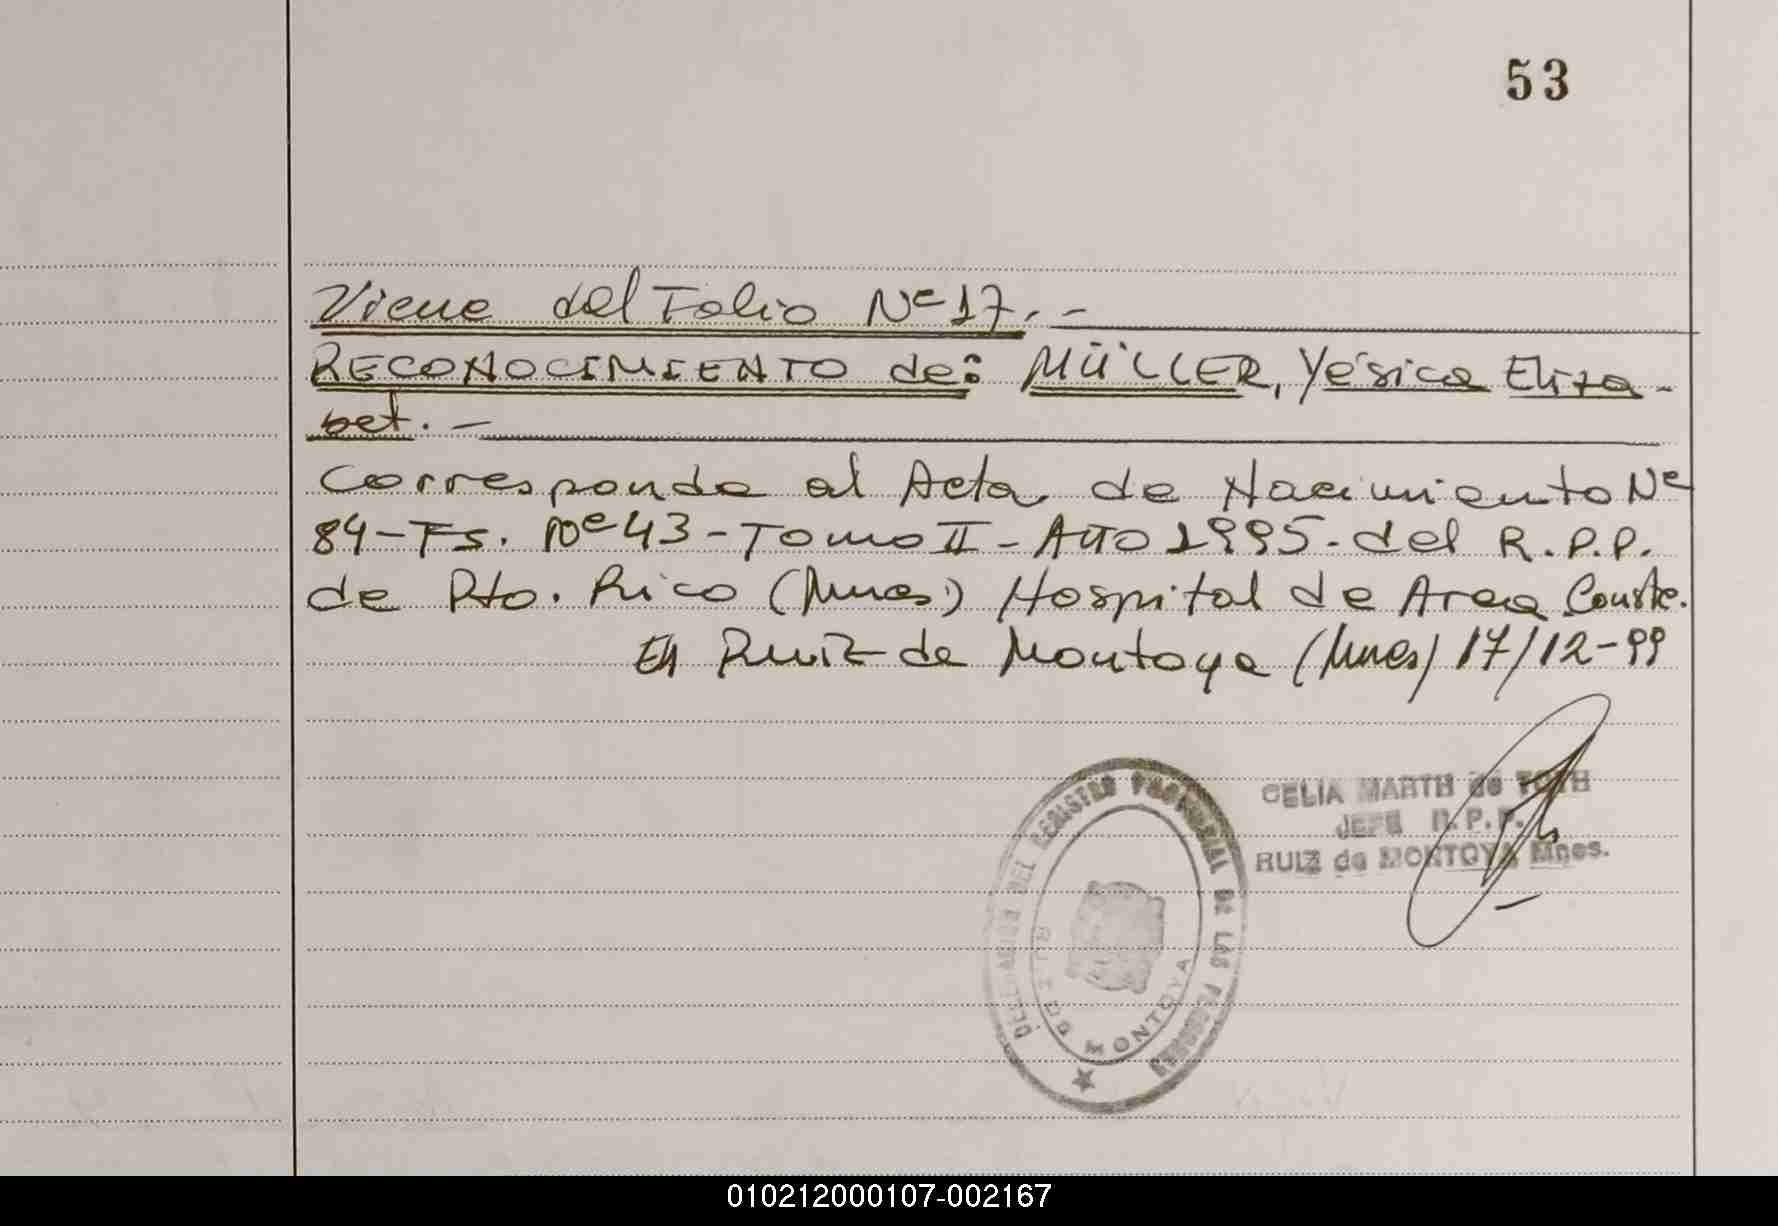 53
Viene del Folio Nº 17.-
RECONOCIMIENTO de: MÜLLER, Yésica Eliza-
bet.-
Corresponde al Acta de Nacimiento Nº
84-Fs. Nº 43-Tomo II- Año 1995.del R.P.P.
de Pto. Rico (Mnes) Hospital de Area Conste.
En Ruiz de Montoya (Mnes) 17/12-99
CELIA MARTH de TOTH
JEFE R.P.P.
RUIZ de MONTOYA Mnes.
DELEGACION DEL REGISTRO PROVINCIAL DE LAS PERSONAS
RUIZ DE MONTOYA
010212000107-002167